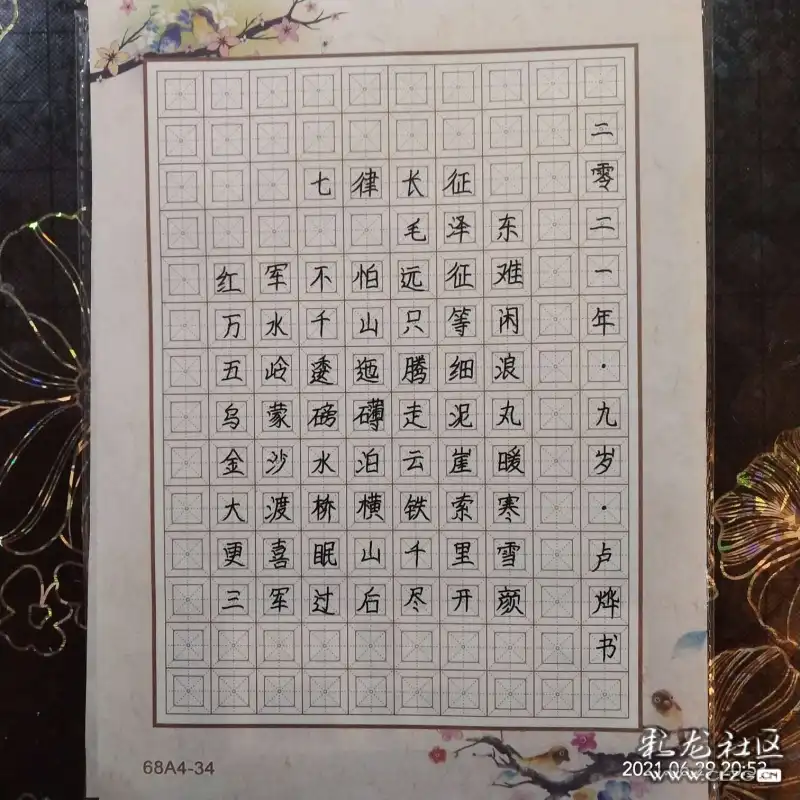 七律长征
毛泽东
红军不怕远征难
万水千山只等闲
五岭逶迤腾细浪
乌蒙磅礴走泥丸
金沙水泊云崖暖
大渡桥横铁索寒
更喜眠山千里雪
三军过后尽开颜
二零二一年·九岁·卢烨书
68A4-34
彩龙社区
2021.06.29 20:52